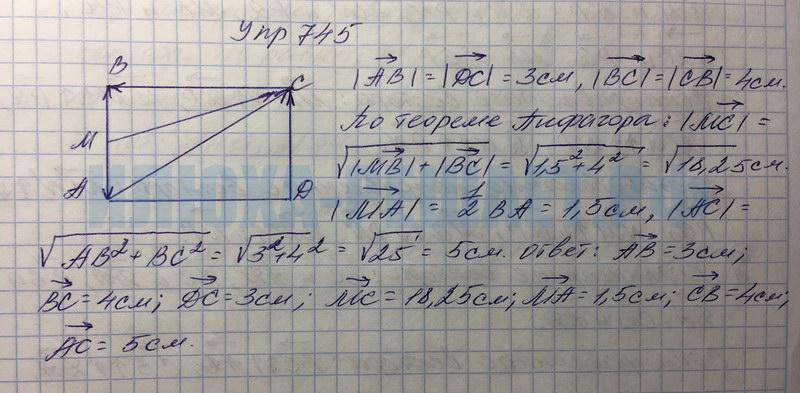 Упр 745
B
C
M
A
D
|AB→| = |DC→| = 3см, |BC→| = |CB→| = 4см.
По теореме Пифагора: |MC→| =
√(|MB→| + |BC→|) = √(1,5² + 4²) = √18,25 см.
|MA→| = 1/2 BA = 1,5см, |AC→| =
√(AB² + BC²) = √(3² + 4²) = √25 = 5см. Ответ: AB→ = 3см;
BC→ = 4см; DC→ = 3см; MC→ = 18,25см; MA→ = 1,5см; CB→ = 4см;
AC→ = 5см.